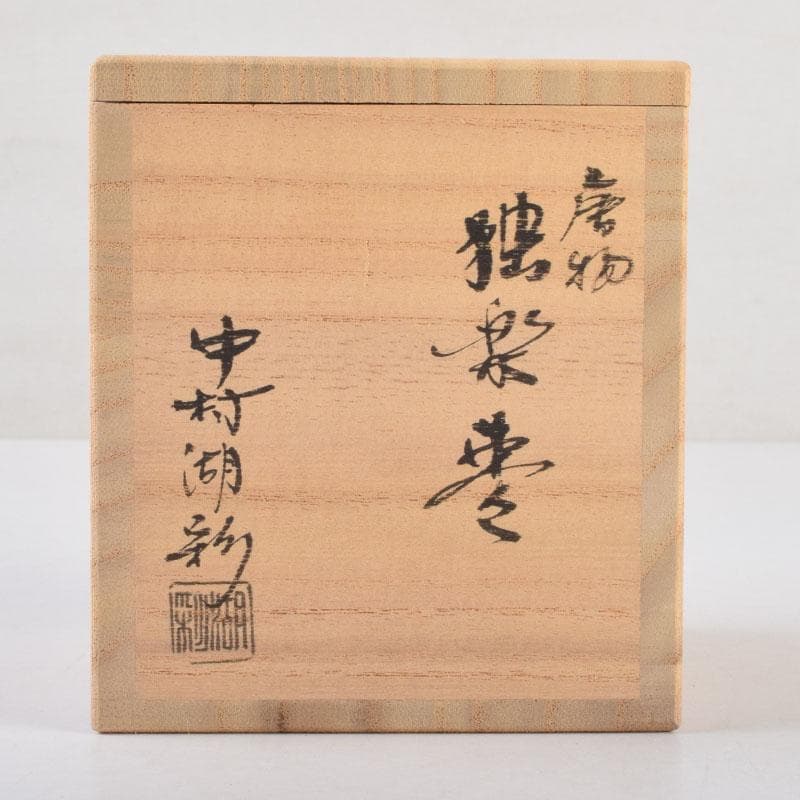 唐物
独楽棗
中村湖彩
湖彩